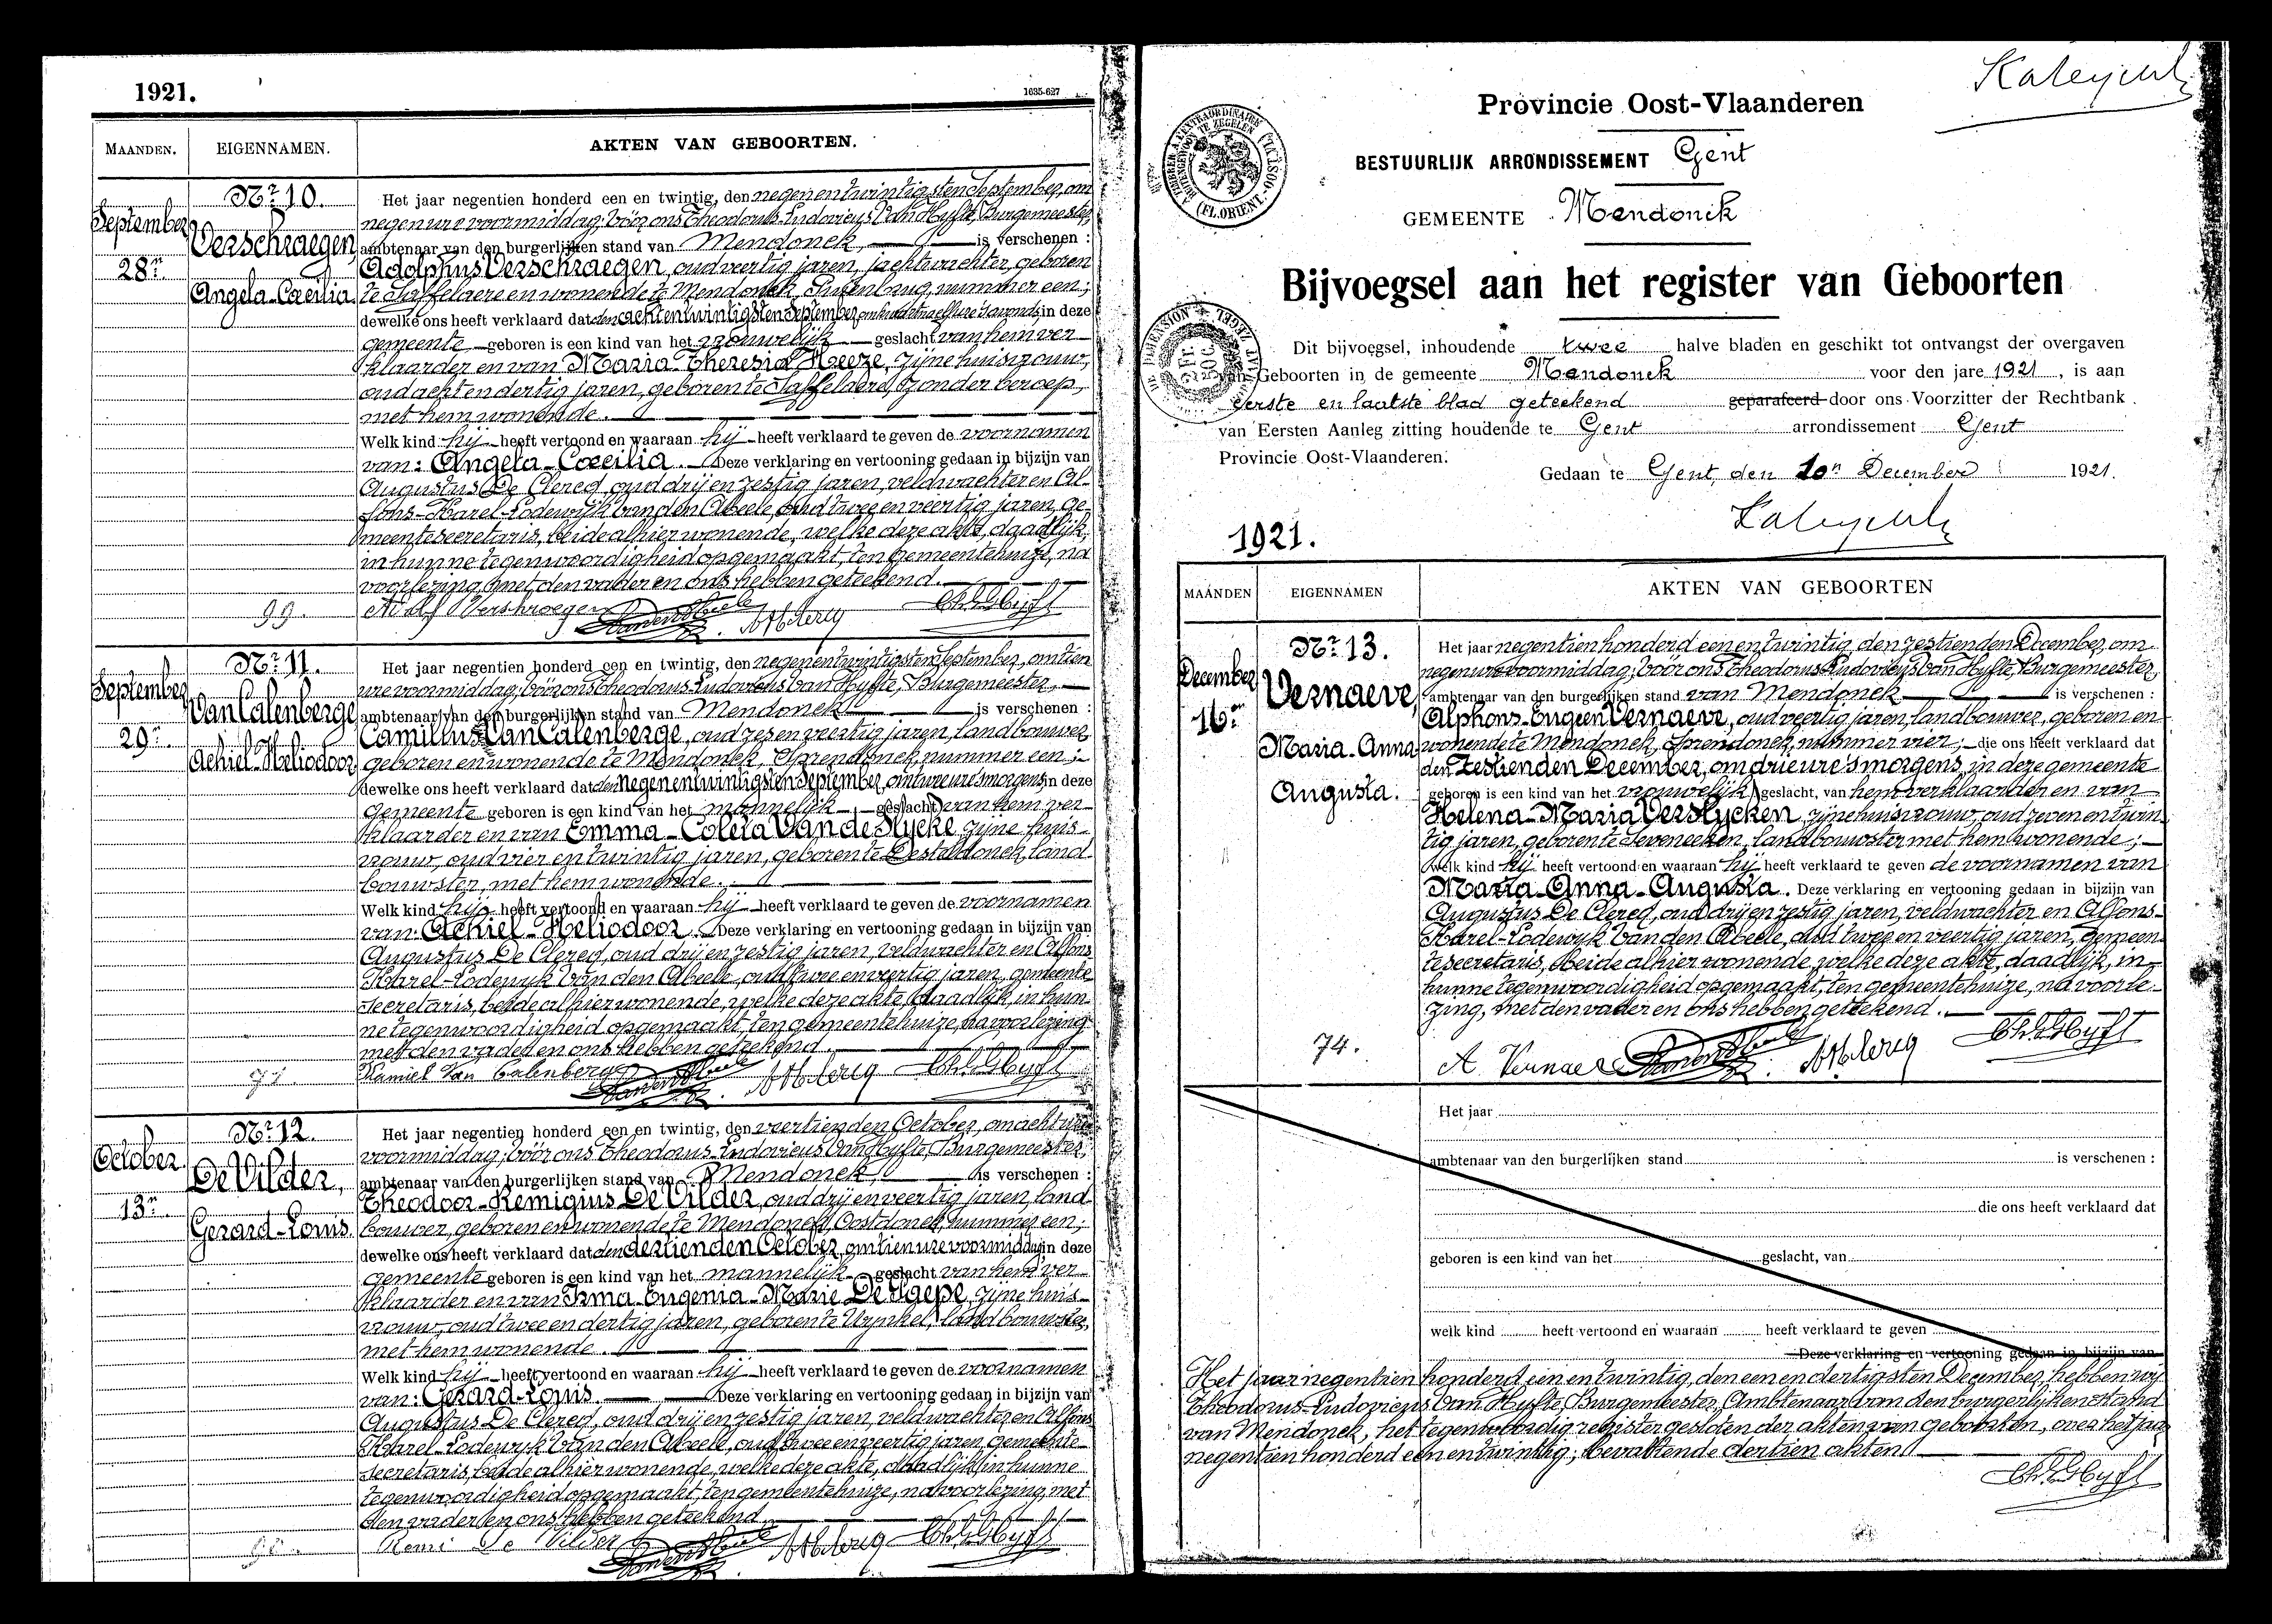 1921.
1635-627
MAANDEN.
EIGENNAMEN.
AKTEN VAN GEBOORTEN.
September
28n.
Nr. 10.
Verschraegen,
Angela-Cæcilia.
99.
Het jaar negentien honderd een en twintig, den negenentwintigsten September, om
negen ure voormiddag; vóór ons Theodorus-Ludovicus Van Hyfte, Burgemeester,
ambtenaar van den burgerlijken stand van Mendonck, is verschenen :
Adolphus Verschraegen, oud veertig jaren, jachtwachter, geboren
te Saffelaere en wonende te Mendonck, nummer een;
dewelke ons heeft verklaard dat den achtentwintigsten September, 's avonds, in deze
gemeente geboren is een kind van het vrouwelijk geslacht van hem ver-
klaarder en van Maria-Theresia Heeze, zijne huisvrouw,
oud achtendertig jaren, geboren te Saffelaere, zonder beroep,
met hem wonende.
Welk kind hij heeft vertoond en waaraan hij heeft verklaard te geven de voornamen
van: Angela-Cæcilia. Deze verklaring en vertooning gedaan in bijzijn van
Augustus De Clercq, oud drij en zestig jaren, veldwachter en Al-
fons-Karel-Lodewijk Van den Abeele, oud twee en veertig jaren, ge-
meentesecretaris, beide alhier wonende, welke deze akte, daadlijk,
in hunne tegenwoordigheid opgemaakt, ten gemeentehuize, na
voorlezing, met den vader en ons hebben geteekend.
Adolf Vershraegen
September
29n.
Nr. 11.
Van Calenberge
Achiel-Heliodoor
Het jaar negentien honderd een en twintig, den negenentwintigsten September, om tien
ure voormiddag; vóór ons Theodorus-Ludovicus Van Hyfte, Burgemeester,
ambtenaar van den burgerlijken stand van Mendonck is verschenen :
Camillus Van Calenberge, oud zes en veertig jaren, landbouwer,
geboren en wonende te Mendonck, Sprendonck, nummer een;
dewelke ons heeft verklaard dat den negenentwintigsten September, om twee ure 's morgens, in deze
gemeente geboren is een kind van het mannelijk geslacht van hem ver-
klaarder en van Emma-Coleta Van de Slycke, zijne huis-
vrouw, oud vier en twintig jaren, geboren te Desteldonck, land-
bouwster, met hem wonende.
Welk kind hij heeft vertoond en waaraan hij heeft verklaard te geven de voornamen
van: Achiel-Heliodoor. Deze verklaring en vertooning gedaan in bijzijn van
Augustus De Clercq, oud drij en zestig jaren, veldwachter en Alfons-
Karel-Lodewyk Van den Abeele, oud twee en veertig jaren, gemeente-
secretaris, beide alhier wonende, welke deze akte, daadlijk, in hun-
ne tegenwoordigheid opgemaakt, ten gemeentehuize, na voorlezing
met den vader en ons hebben geteekend.
Kamiel Van Calenberge
October
13n.
Nr. 12.
De Vilder,
Gerard-Louis.
Het jaar negentien honderd een en twintig, den veertienden October, om acht ure
voormiddag; vóór ons Theodorus-Ludovicus Van Hyfte, Burgemeester,
ambtenaar van den burgerlijken stand van Mendonck, is verschenen :
Theodoor-Remigius De Vilder, oud drij en veertig jaren, land-
bouwer, geboren en wonende te Mendonck, Oostdonck, nummer een;
dewelke ons heeft verklaard dat den dertienden October, om tien ure voormiddag in deze
gemeente geboren is een kind van het mannelijk geslacht van hem ver-
klaarder en van Irma-Eugenia-Marie De Sgepe, zijne huis-
vrouw, oud twee en dertig jaren, geboren te Wynkel, landbouwster,
met hem wonende.
Welk kind hij heeft vertoond en waaraan hij heeft verklaard te geven de voornamen
van: Gerard-Louis. Deze verklaring en vertooning gedaan in bijzijn van
Augustus De Clercq, oud drij en zestig jaren, veldwachter en Alfons
Karel-Lodewyk Van den Abeele, oud twee en veertig jaren, gemeente-
secretaris, beide alhier wonende, welke deze akte, daadlijk, in hunne
tegenwoordigheid opgemaakt, ten gemeentehuize, na voorlezing, met
den vader en ons hebben geteekend.
Remi De Vilder
Provincie Oost-Vlaanderen
BESTUURLIJK ARRONDISSEMENT Gent
GEMEENTE Mendonck
Bijvoegsel aan het register van Geboorten
Dit bijvoegsel, inhoudende twee halve bladen en geschikt tot ontvangst der overgaven
van Geboorten in de gemeente Mendonck voor den jare 1921, is aan
eerste en laatste blad geteekend geparafeerd door ons Voorzitter der Rechtbank
van Eersten Aanleg zitting houdende te Gent arrondissement Gent
Provincie Oost-Vlaanderen.
Gedaan te Gent, den 10n December 1921.
1921.
MAANDEN
EIGENNAMEN
AKTEN VAN GEBOORTEN
December
16n.
Nr. 13.
Vernaeve,
Maria-Anna-
Augusta.
74.
Het jaar negentien honderd een en twintig, den zestienden December, om
negen ure voormiddag; vóór ons Theodorus-Ludovicus Van Hyfte, Burgemeester,
ambtenaar van den burgerlijken stand van Mendonck is verschenen :
Alphons-Eugeen Vernaeve, oud veertig jaren, landbouwer, geboren en
wonende te Mendonck, Sprendonck, nummer vier; die ons heeft verklaard dat
den zestienden December, om drie ure 's morgens, in deze gemeente
geboren is een kind van het vrouwelijk geslacht, van hem verklaarder en van
Helena-Maria Verslycken, zijne huisvrouw, oud zeven en twin-
tig jaren, geboren te Seveneeken, landbouwster met hem wonende;
welk kind hij heeft vertoond en waaraan hij heeft verklaard te geven de voornamen van
Maria-Anna-Augusta. Deze verklaring en vertooning gedaan in bijzijn van
Augustus De Clercq, oud drij en zestig jaren, veldwachter en Alfons-
Karel-Lodewyk Van den Abeele, oud twee en veertig jaren, gemeen-
tesecretaris, beide alhier wonende, welke deze akte, daadlijk, in
hunne tegenwoordigheid opgemaakt, ten gemeentehuize, na voorle-
zing, met den vader en ons hebben geteekend.
A. Vernaeve
Het jaar
ambtenaar van den burgerlijken stand is verschenen :
die ons heeft verklaard dat
geboren is een kind van het geslacht, van
welk kind heeft vertoond en waaraan heeft verklaard te geven
Deze verklaring en vertooning gedaan in bijzijn van
Het jaar negentien honderd een en twintig, den een en dertigsten December, hebben wij
Theodorus-Ludovicus Van Hyfte, Burgemeester, Ambtenaar van den burgerlijken stand
van Mendonck, het tegenwoordig register gesloten der akten van geboorten, over het jaar
negentien honderd een en twintig; bevattende dertien akten.